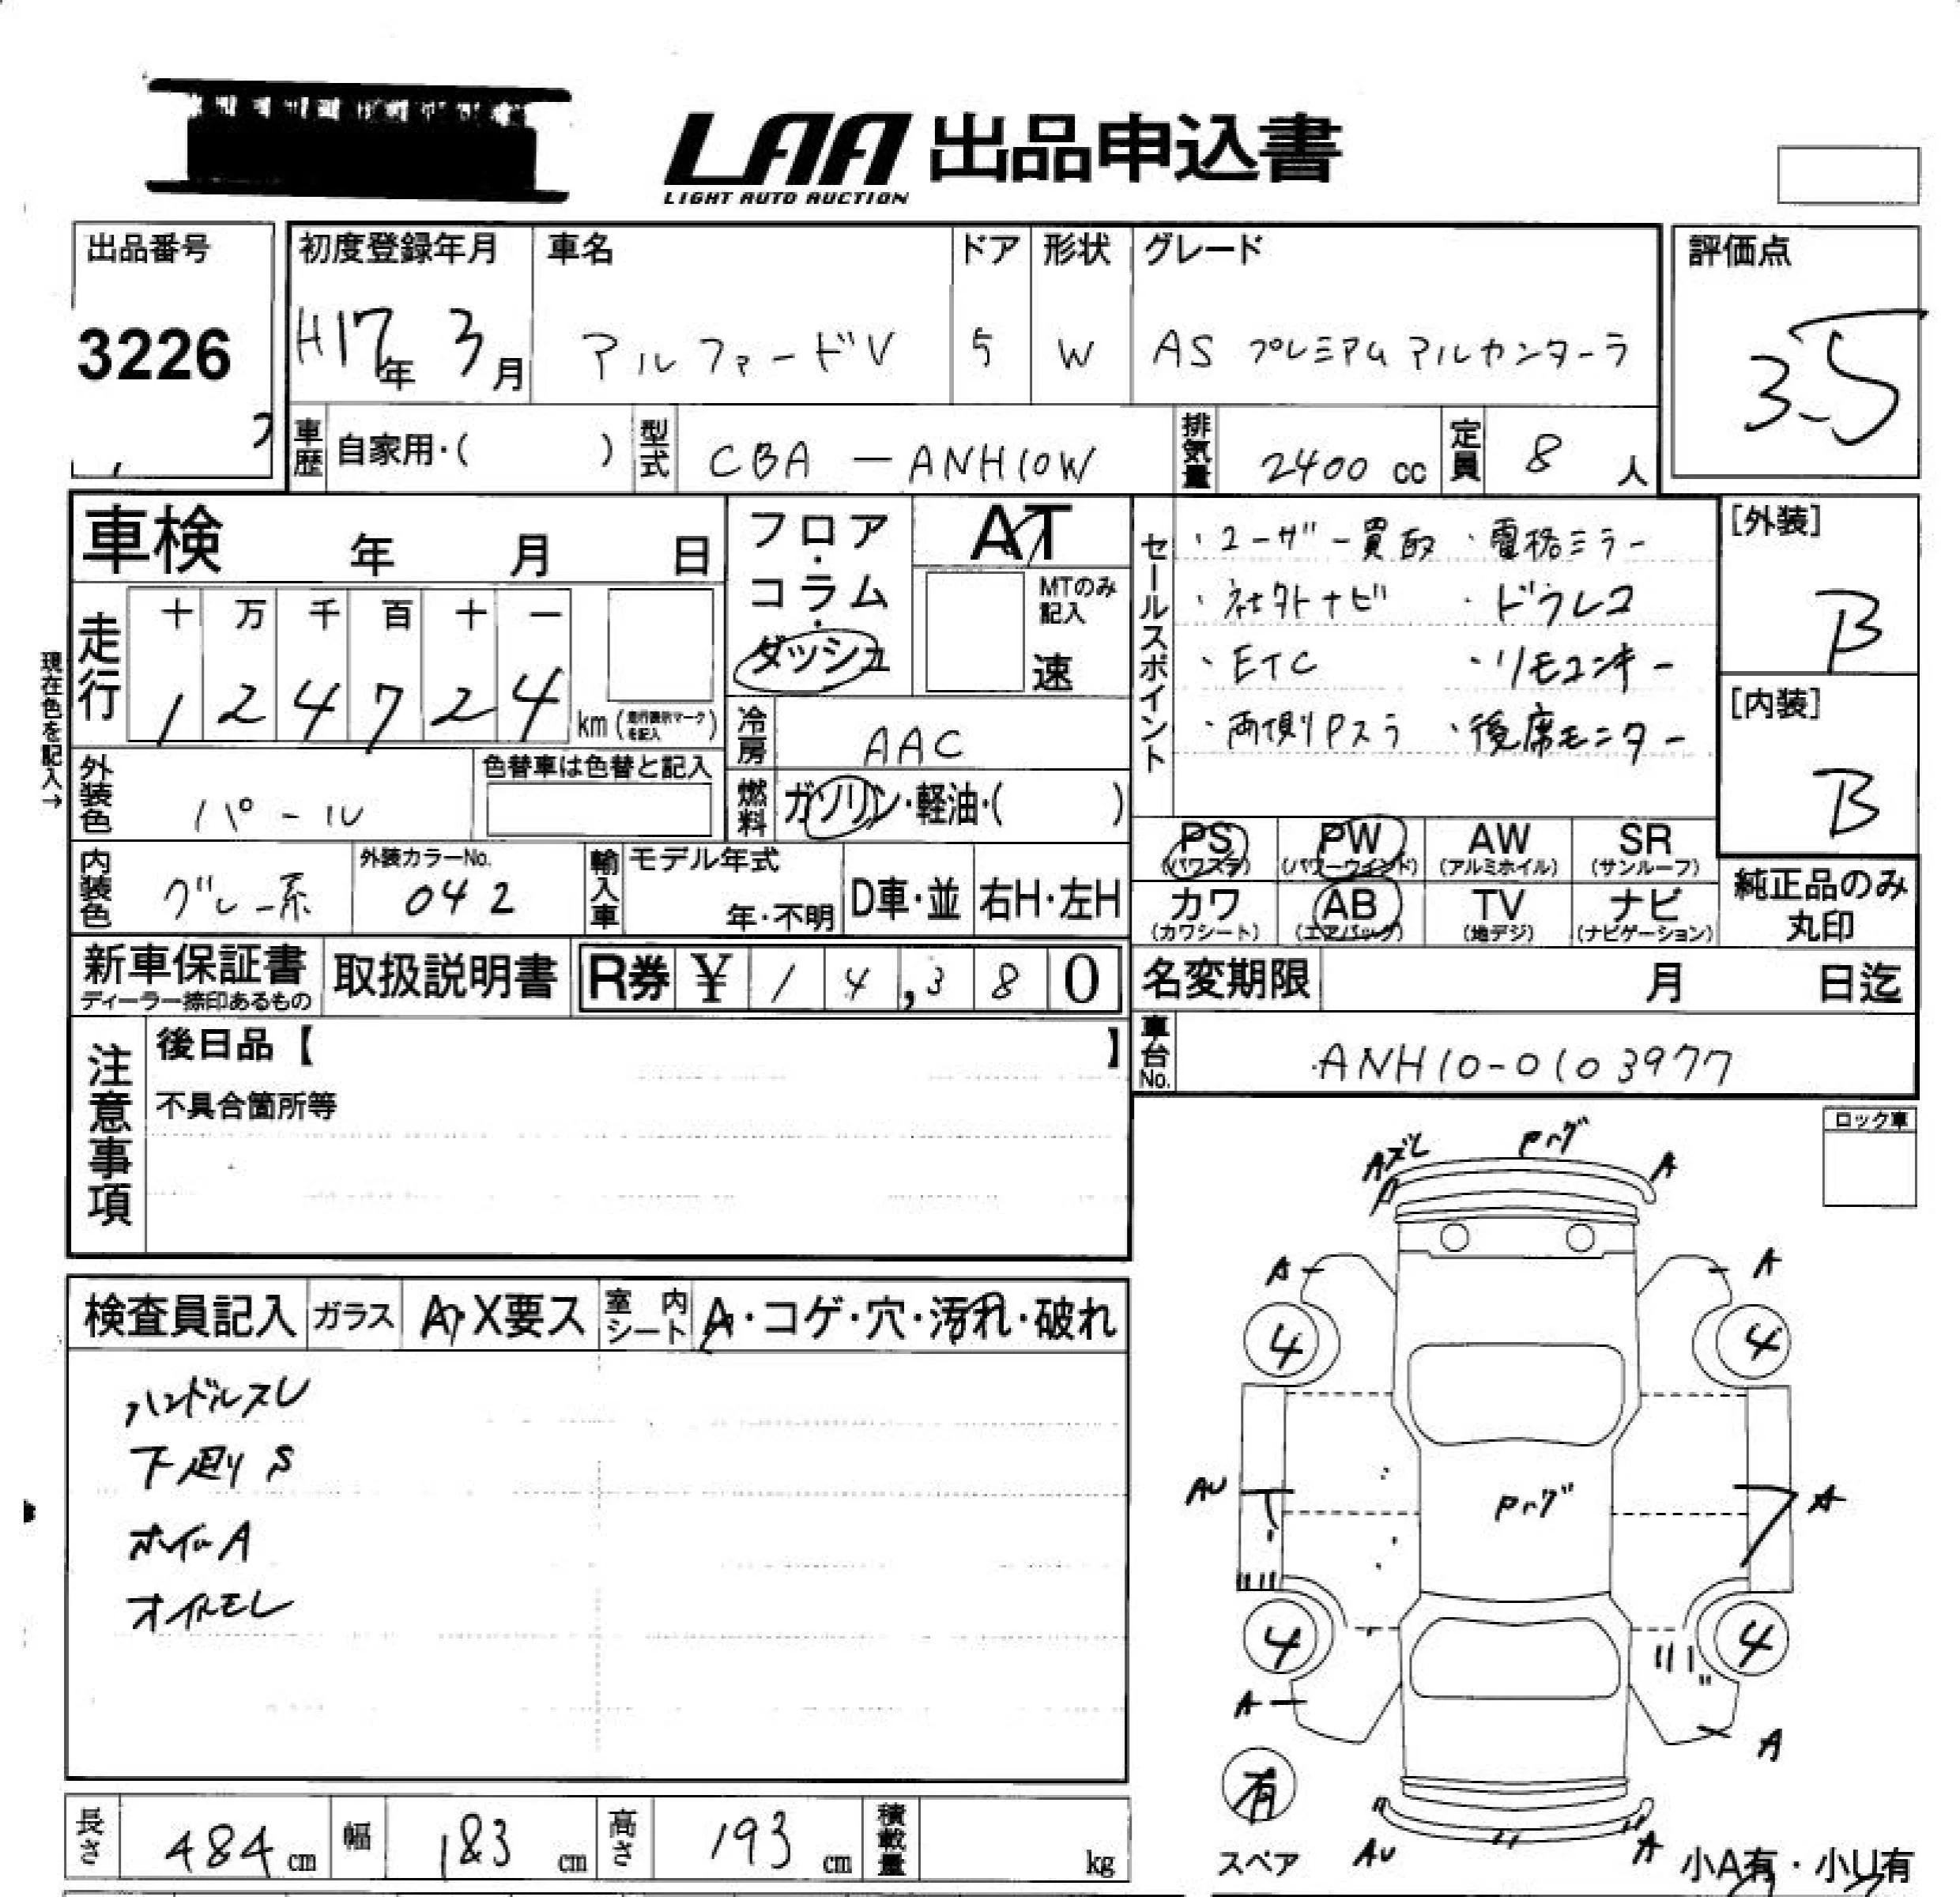 LAA 出品申込書
LIGHT AUTO AUCTION
出品番号
3226
初度登録年月
H17年 3月
車名
アルファードV
ドア
5
形状
W
グレード
AS プレミアム アルカンターラ
評価点
3.5
車歴
自家用・( )
型式
CBA-ANH10W
排気量
2400 cc
定員
8人
車検 年 月 日
フロア・コラム・ダッシュ
AT
MTのみ記入
速
現在色を記入→
走行
十 万 千 百 十 一
1 2 4 7 2 4 km (走行表示マークを記入)
冷房
AAC
外装色
パール
色替車は色替と記入
燃料
ガソリン・軽油・( )
内装色
グレー系
外装カラーNo.
042
輸入車
モデル年式
年・不明
D車・並
右H・左H
セールスポイント
・ユーザー買取 ・電格ミラー
・社外ナビ ・ドラレコ
・ETC ・リモコンキー
・両側Pスラ ・後席モニター
[外装]
B
[内装]
B
PS (パワステ)
PW (パワーウインド)
AW (アルミホイル)
SR (サンルーフ)
カワ (カワシート)
AB (エアバック)
TV (地デジ)
ナビ (ナビゲーション)
純正品のみ
丸印
新車保証書
ディーラー捺印あるもの
取扱説明書
R券 ¥ 1 4,3 8 0
名変期限 月 日迄
車台No.
ANH10-0103977
注意事項
後日品【 】
不具合箇所等
ロック車
検査員記入
ガラス
A・X要ス
室内シート
A・コゲ・穴・汚れ・破れ
ハンドルスレ
下廻りS
ホイールA
オイルモレ
AズレPrグ A
A A
4 4
AU Prグ A
4 4
A A
有
スペア
AU A
小A有・小U有
長さ
484 cm
幅
183 cm
高さ
193 cm
積載量
kg